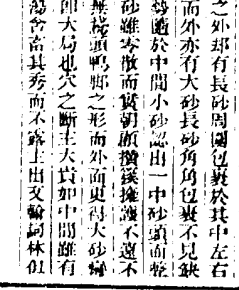 之外却有長砂周圍包裹於其中左右
而外亦有大砂長砂角角包裹不見缺
隨於中間小砂認出一中砂頭而整
砂雖零散而貪朝顧攢簇擁護不遠不
無槎頭鴨腳之形而外面更得大砂
即大局也穴之斷主大貴如中間雖有
畜其秀而不露主出文翰詞林但